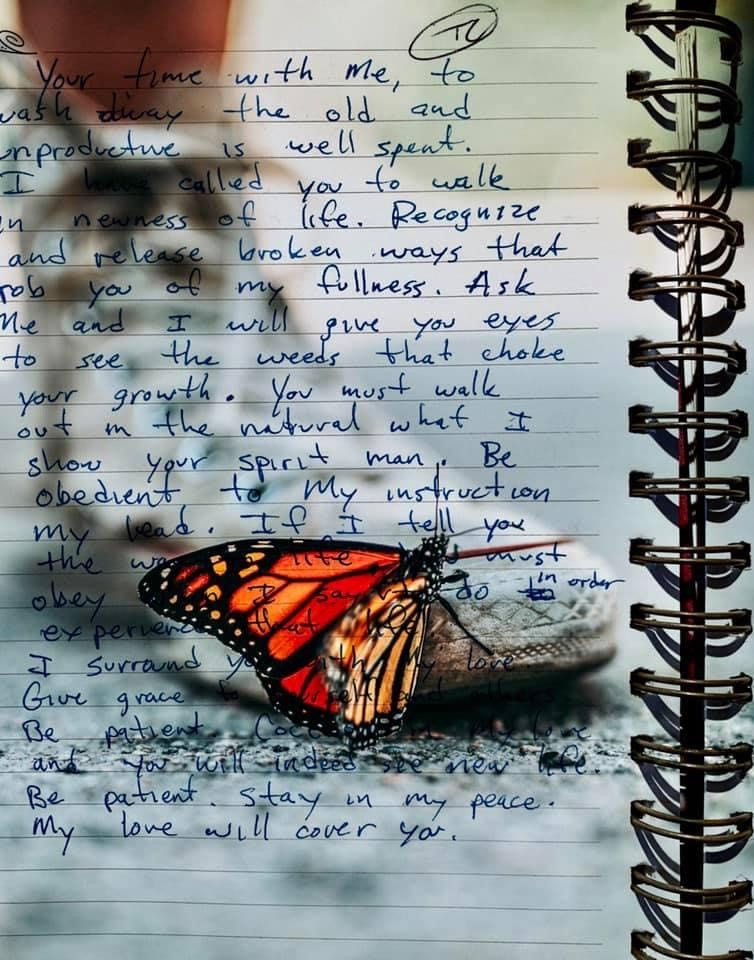 Your time with Me, to
wash away the old and
unproductive is well spent.
I have called you to walk
in newness of life. Recognize
and release broken ways that
rob you of my fullness. Ask
Me and I will give you eyes
to see the weeds that choke
your growth. You must walk
out in the natural what I
show your spirit man. Be
obedient to My instruction
my lead. If I tell you
the life must
obey I say do in order
experience that life
I surround you with My love
Give grace and others
Be patient. in My love
and you will indeed see new life.
Be patient. Stay in my peace.
My love will cover you.